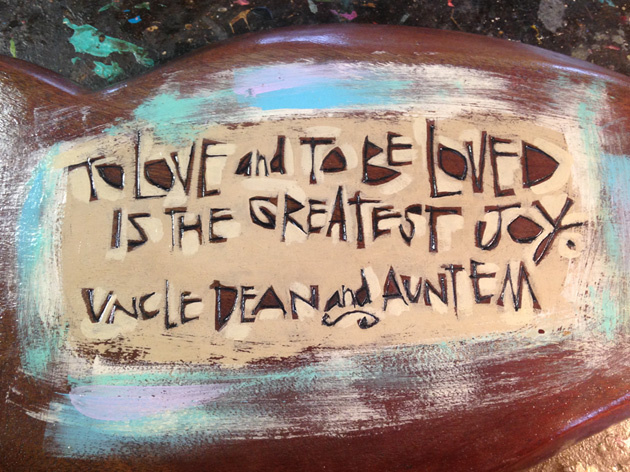 TO LOVE and TO BE LOVED
IS THE GREATEST JOY.
UNCLE DEAN and AUNT EM